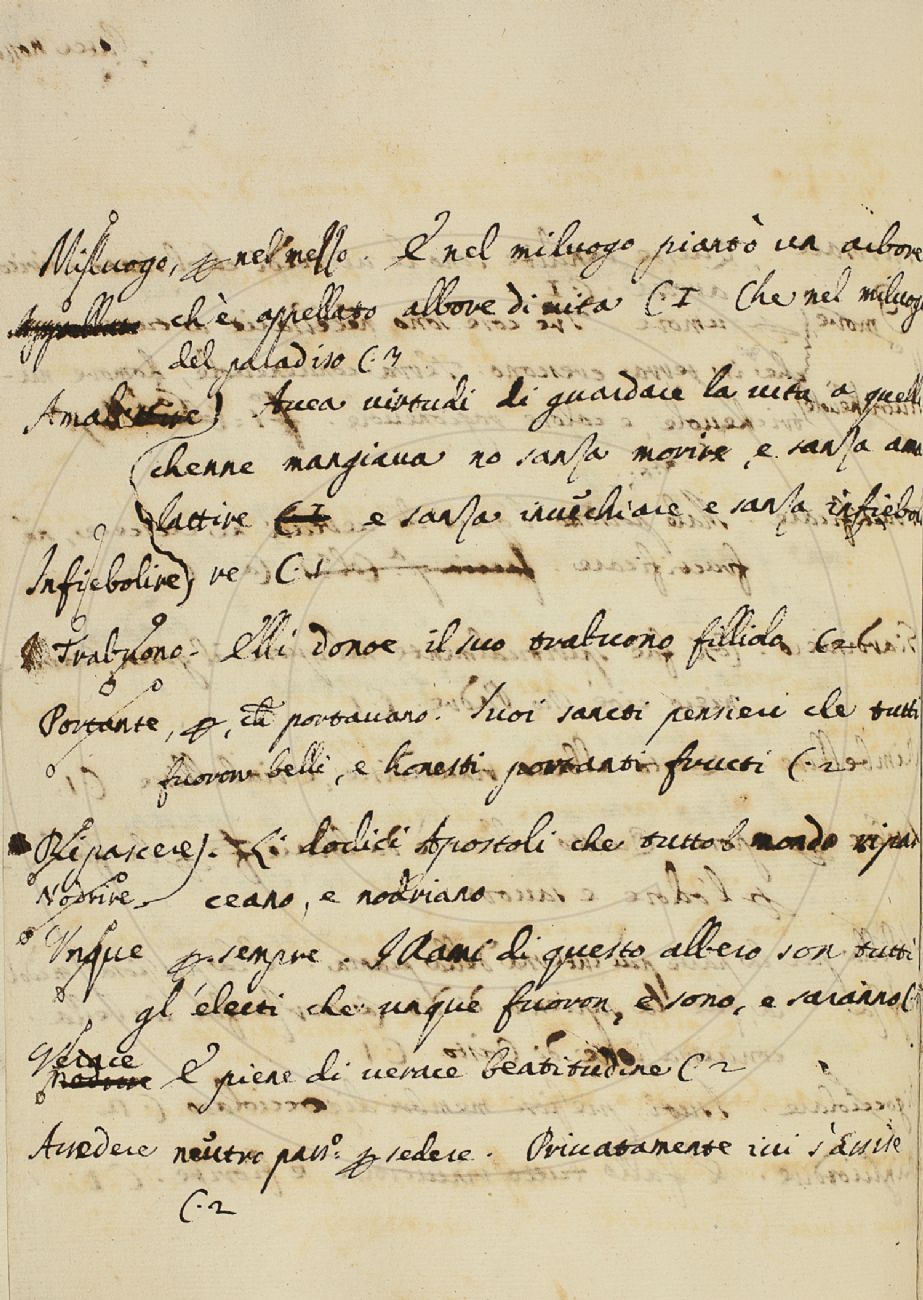 Misluogo, p nel messo. E nel miluogo piantò un arbore
ch'è appellato albore di vita C. 1 Che nel miluogo
del paradiso C. 3
Amalattire) Avea virtudi di guardare la vita a quelli
chenne mangiava no sanza morire, e sanza ama
lattire e sanza invechiare e sanza infiebol
Infiebolire) re C. 1
Trabuono. Elli donoe il suo trabuono filliolo C. 6
Portante, p, che portavano. I suoi sancti pensieri che tutti
fuorono belli, e honesti portanti fructi C. 2
Ripascere). Li dodici Apostoli che tutto 'l mondo ripas
Nodrire ceano, e nodriano
Unque p sempre. I Rami di questo albero son tutti
gl'electi che unque fuoron, e sono, e saranno C.
Verace E piene di verace beatitudine C. 2
Assedere neutro pass.o p sedere. Privatamente ivi s'assise
C. 2